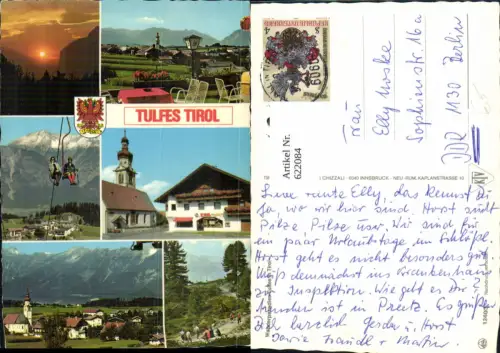 TULFES TIROL
6090
Artikel Nr.
622084
Frau
Elly Muske
Sophienstr. 16a
DDR 1130 Berlin
CHIZZALI · 6040 INNSBRUCK - NEU-RUM, KAPLANSTRASSE 10
Liebe Elly, das kennst Du
ja, wo wir hier sind. Horst sucht
Pilze, Pilze usw. Wir sind für
ein paar Urlaubstage im
Horst geht es nicht besonders gut
Muß demnächst ins Krankenhaus
zur Inspektion. Wie geht es Dir?
ist in Preetz. Es grüßen
Dich herzlich Gerda u. Horst
sowie Traudel + Martin